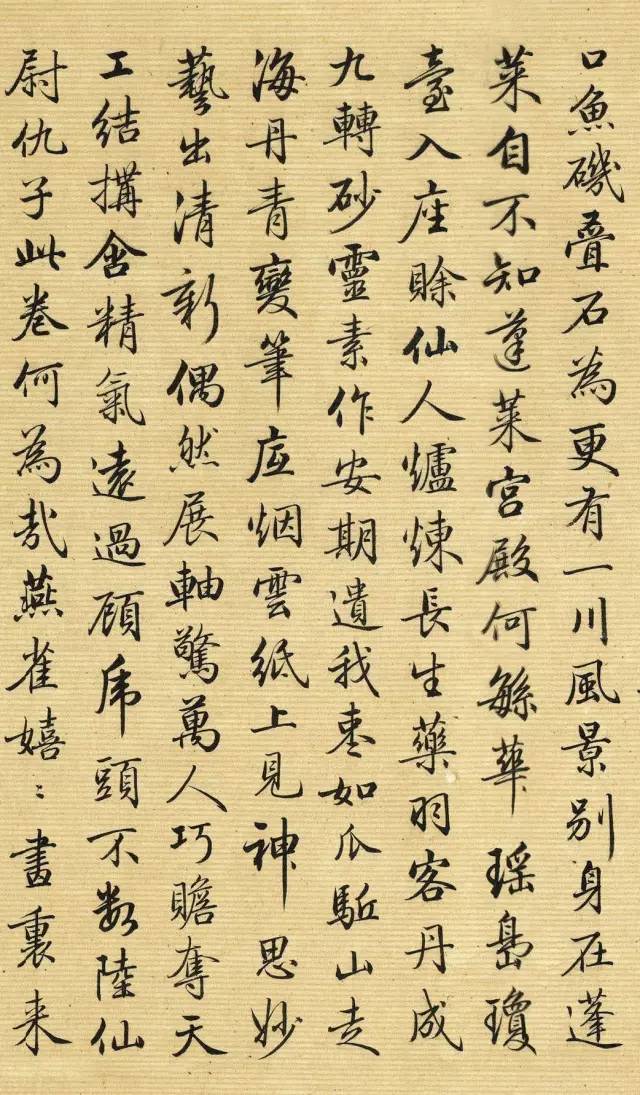 口魚磯叠石為更有一川風景别身在蓬
莱自不知蓬莱宫殿何緐華瑶島瓊
臺入座賒仙人爐煉長生藥羽客丹成
九轉砂靈素作安期遺我枣如瓜駈山走
海丹青變筆底烟雲紙上見神思妙
藝出清新偶然展軸驚萬人巧贍奪天
工結搆含精氣遠過顾虎頭不数陸仙
尉仇子此卷何為哉燕雀嬉〻畫裏来